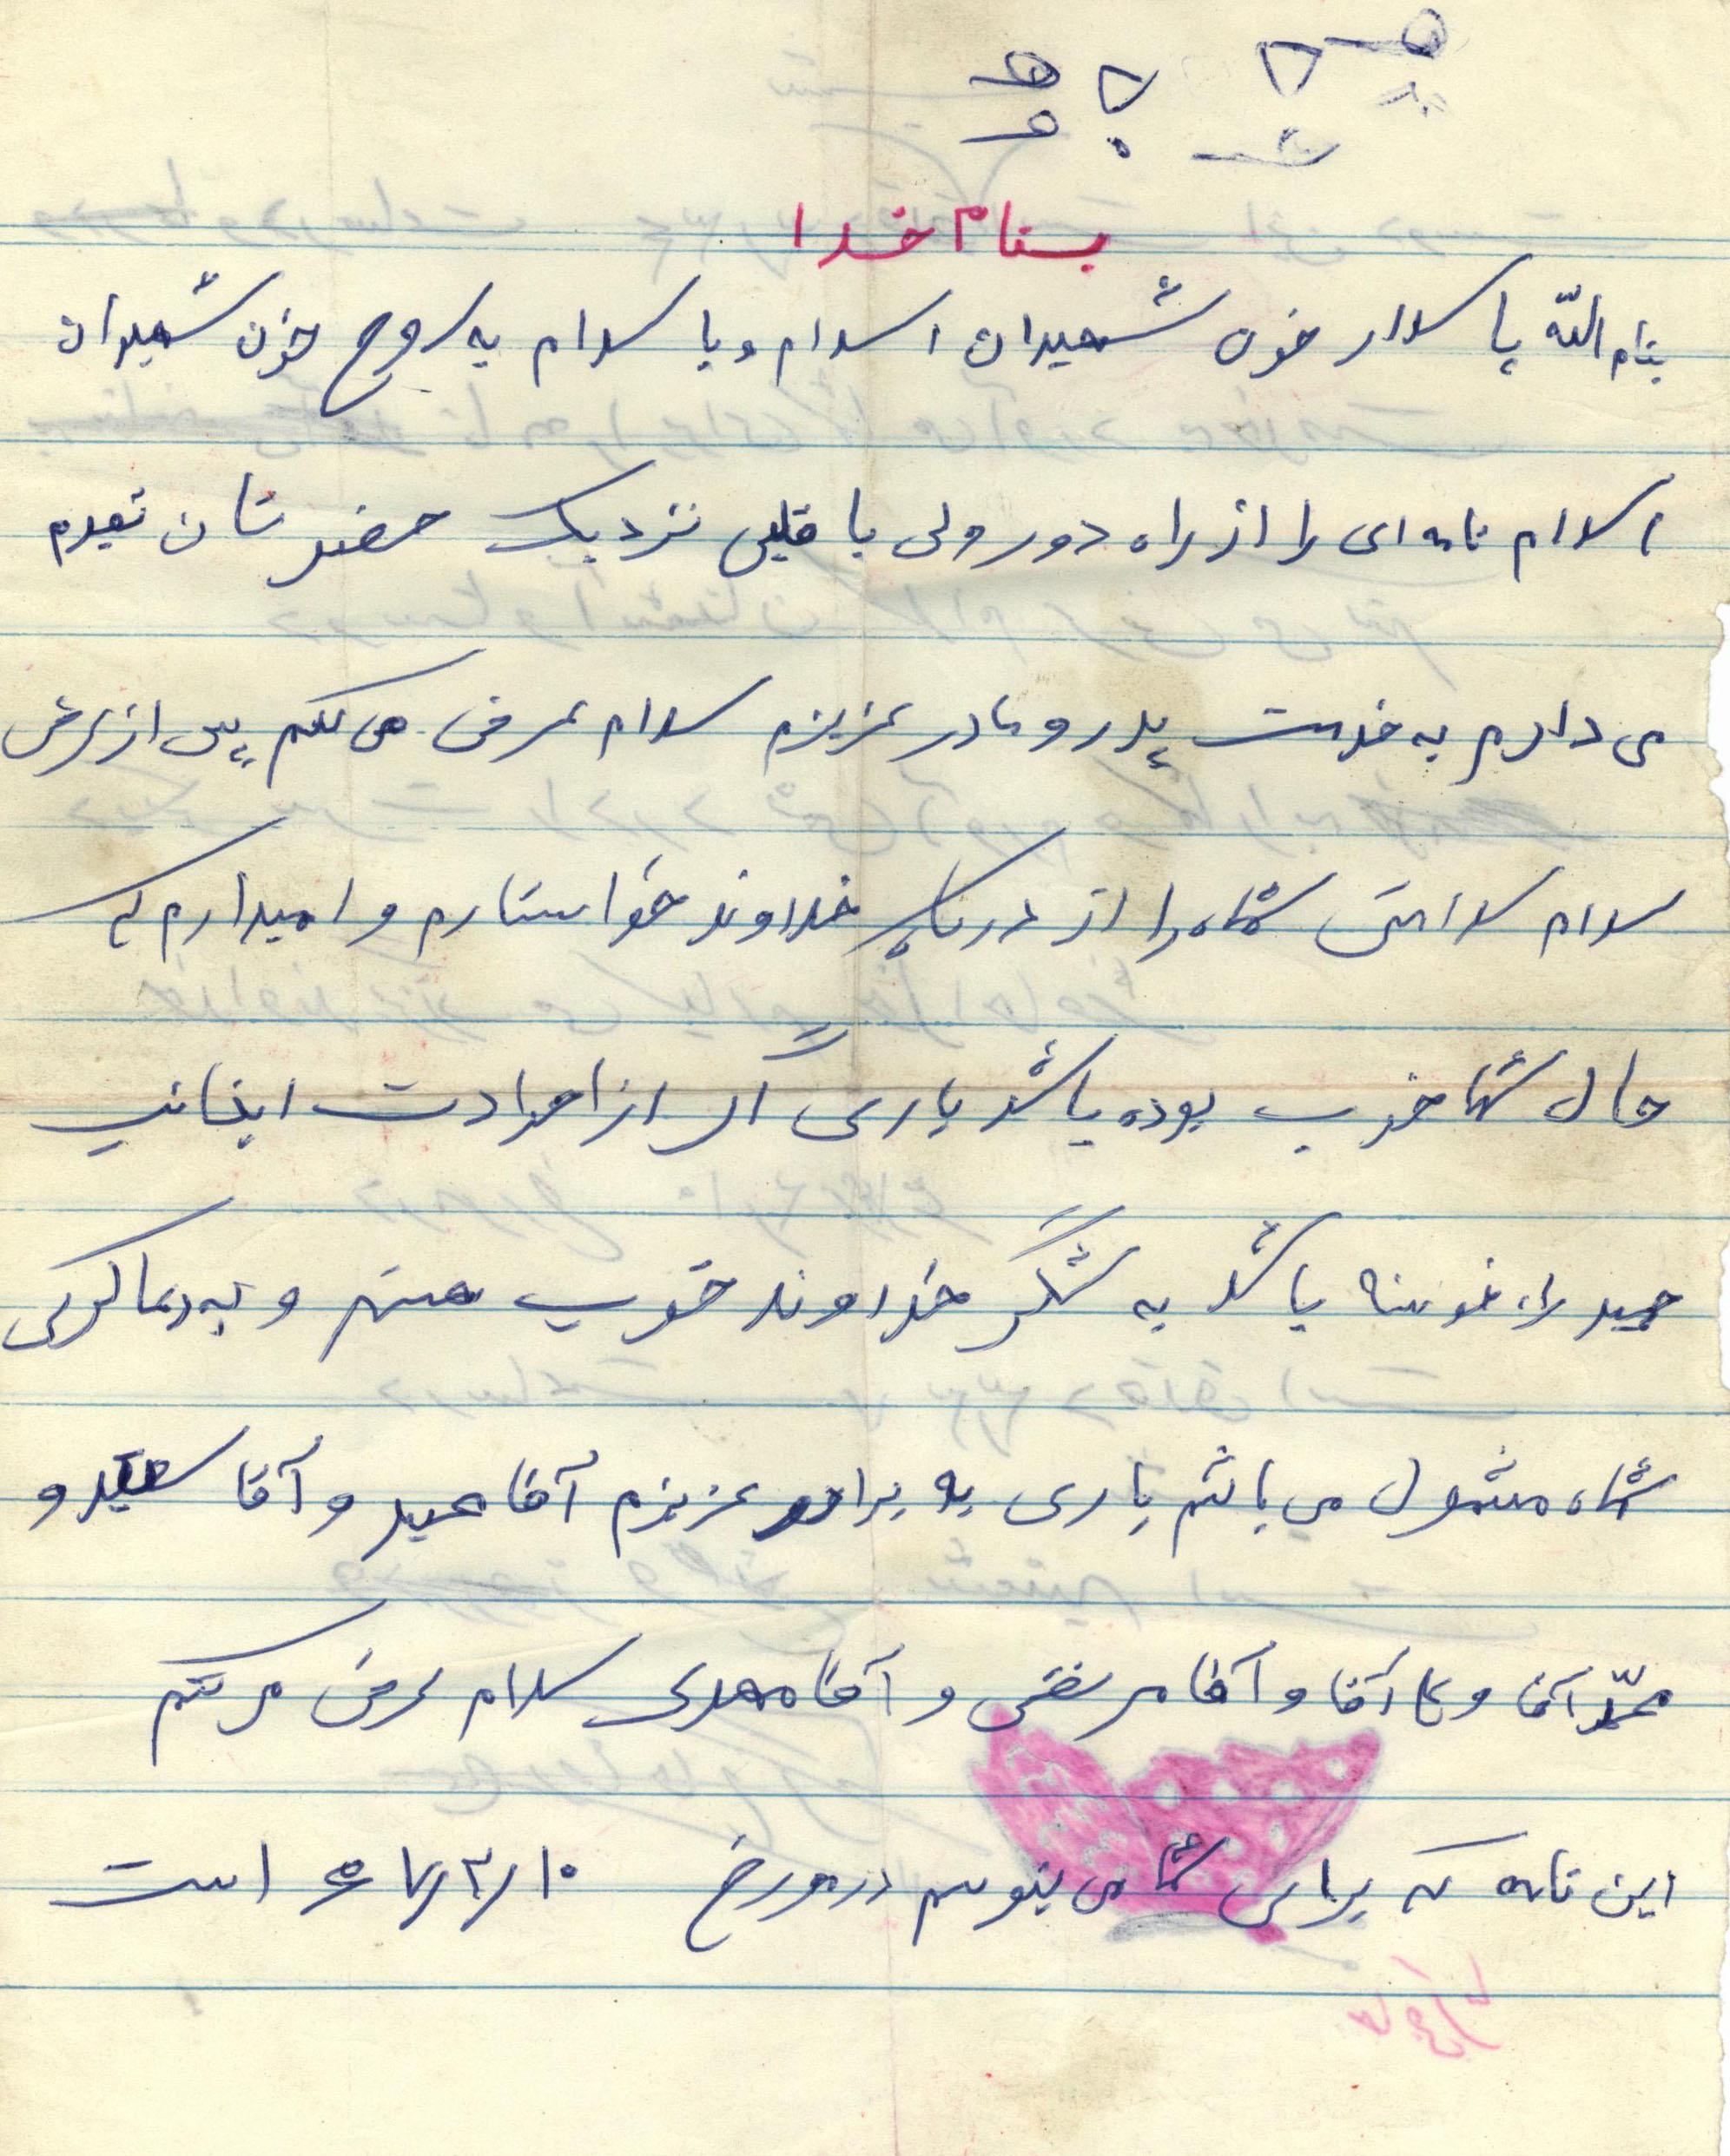 بنام خدا
بنام الله پاسدار خون شهیدان اسلام و با سلام به روح خون شهیدان
اسلام نامه ای را از راه دور ولی با قلبی نزدیک حضورتان تقدیم
می دارم به خدمت پدر و مادر عزیزم سلام عرض می کنم پس از عرض
سلام سلامتی شما را از درگاه خداوند خواستارم و امیدارم که
حال شما خوب بوده باشد باری اگر از احوادت اینجانب
حمید را خوسته باشد به شکر خداوند خوب هستم و به دعا گوی
شما مشغول می باشم باری به برادر عزیزم آقا حمید و آقا سعید و
محمد آقا و آقا و آقا مرتضی و آقا مهدی سلام عرض می کنم
این نامه که برای شما می نویسم در مورخ ۱۰/۳/۶۷ است